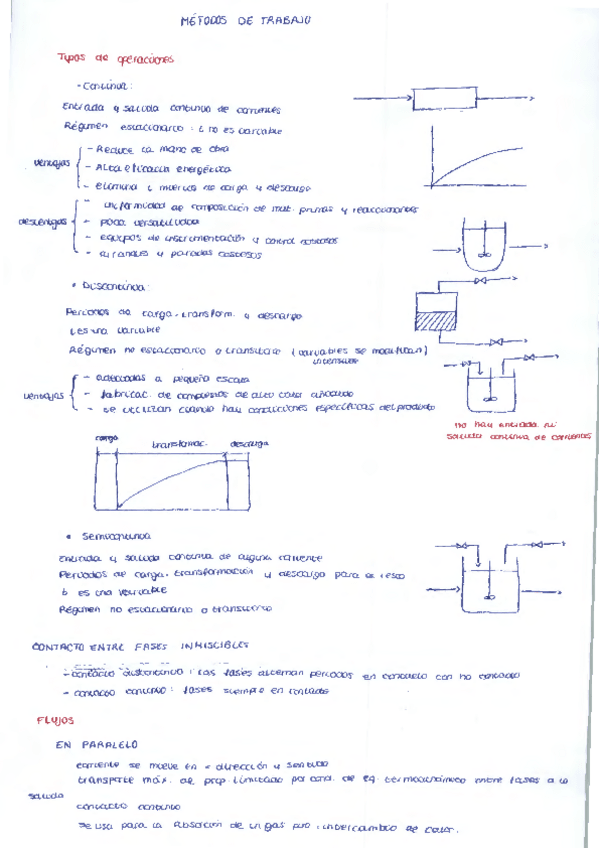 MÉTODOS DE TRABAJO
Tipos de operaciones
• Continua:
Entrada y salida continua de corrientes
Régimen estacionario: t no es variable
ventajas
- Reduce la mano de obra
- Alta eficacia energética
- elimina t muertos de carga y descarga
desventajas
- uniformidad de composición de mat. primas y reaccionantes
- poca versatilidad
- equipos de instrumentación y control costosos
- arranques y paradas costosos
• Discontinua:
Periodos de carga, transform. y descarga
t es una variable
Régimen no estacionario o transitorio (variables se modifican)
intensivas
ventajas
- adecuadas a pequeña escala
- fabricac. de compuestos de alto valor añadido
- se utilizan cuando hay condiciones específicas del producto
no hay entrada ni
salida continua de corrientes
carga transformac. descarga
• Semicontinua
Entrada y salida continua de alguna corriente
Periodos de carga, transformación y descarga para el resto
t es una variable
Régimen no estacionario o transitorio
CONTACTO ENTRE FASES INMISCIBLES
- contacto discontinuo: las fases alternan periodos en contacto con no contacto
- contacto continuo: fases siempre en contacto
FLUJOS
EN PARALELO
corriente se mueve en = dirección y sentido
transporte máx. de prop limitada por cond. de eq. termodinámico entre fases a la
salida
contacto continuo
se usa para la absorción de un gas puro, intercambio de calor.